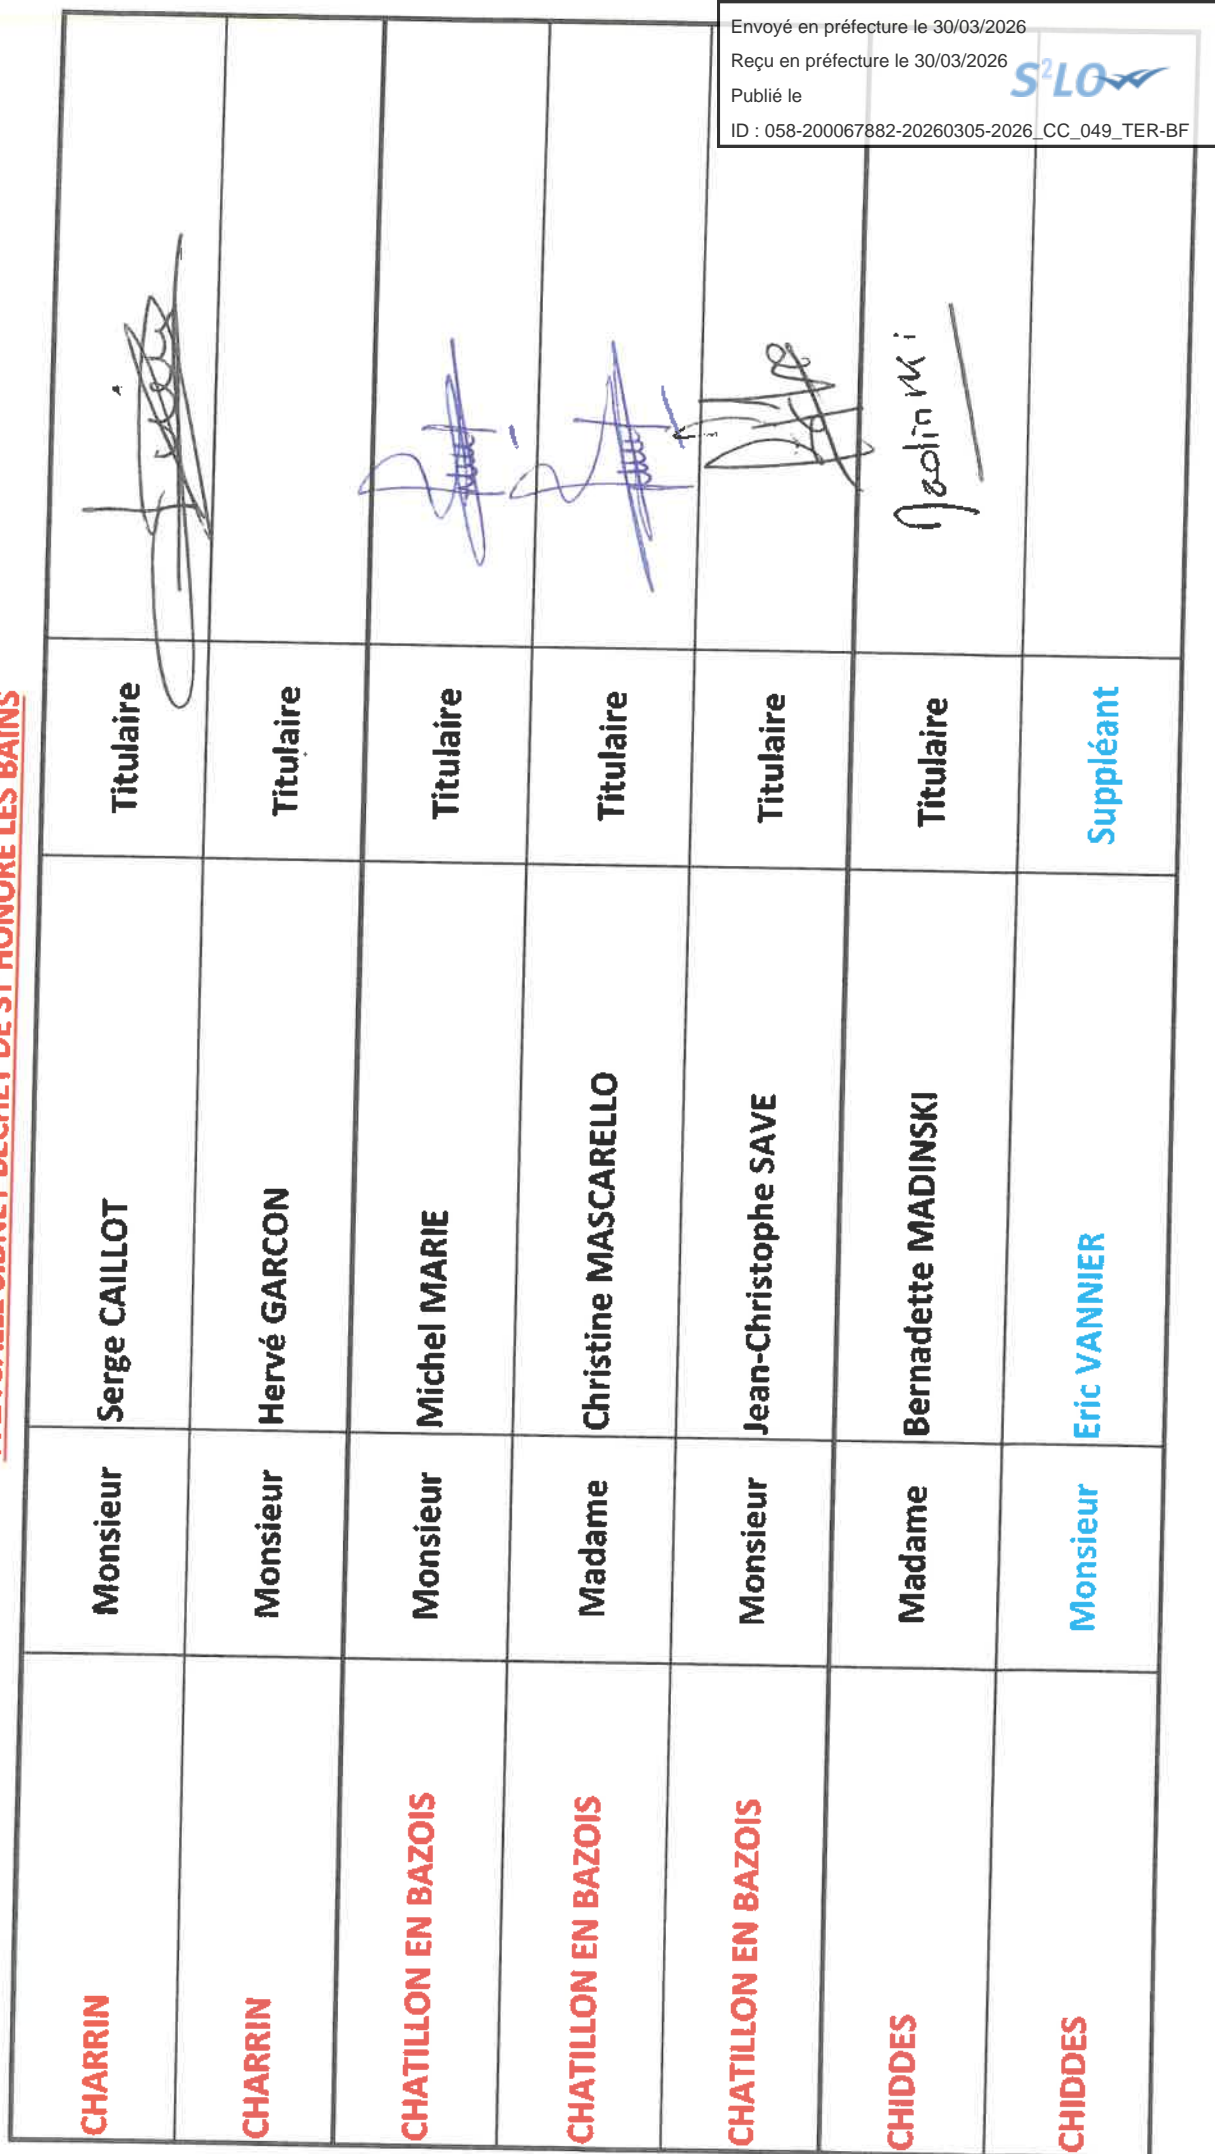 Envoyé en préfecture le 30/03/2026
Reçu en préfecture le 30/03/2026
Publié le
ID : 058-200067882-20260305-2026_CC_049_TER-BF
S²LOW
DE ST HONORE LES BAINS
CHARRIN Monsieur Serge CAILLOT Titulaire
CHARRIN Monsieur Hervé GARCON Titulaire
CHATILLON EN BAZOIS Monsieur Michel MARIE Titulaire
CHATILLON EN BAZOIS Madame Christine MASCARELLO Titulaire
CHATILLON EN BAZOIS Monsieur Jean-Christophe SAVE Titulaire
CHIDDES Madame Bernadette MADINSKI Titulaire
CHIDDES Monsieur Eric VANNIER Suppléant